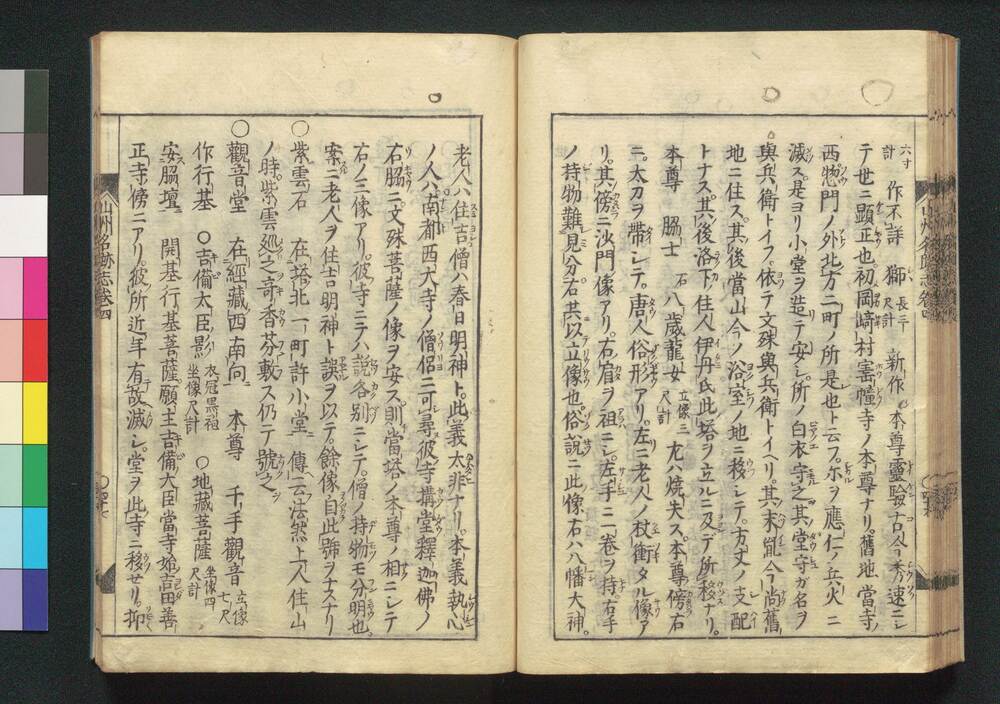 六寸計 作不詳 獅長三尺計 新作 本尊靈驗古今ニ秀速ニシ
テ世ニ顯正也初岡﨑村寚幢寺ノ本尊ナリ。舊地當寺ノ
西惣門ノ外北方二町ノ所是也ト云フ。尓ヲ應仁ノ兵火ニ
滅ス是ヨリ小堂ヲ造テ安シ所ノ白衣守之其堂守ガ名ヲ
與兵衛トイフ。依テ文殊與兵衛トイヘリ。其末胤今尚舊
地ニ住ス。其後當山今ノ浴室ノ地ニ移シテ。方丈ノ支配
トナス。其後洛下ノ住人伊丹氏此塔ヲ立ルニ及デ所移ナリ。
本尊 脇士 右八歳龍女立像三尺計 左ハ燒失ス。本尊傍右
ニ。太刀ヲ帶シテ。唐人俗形アリ。左ニ老人ノ杖衝タル像ア
リ。其傍ニ沙門像アリ。右肩ヲ袒シ。左手ニ一卷ヲ持。右手
ノ持物難見分。右共以立像也。俗說ニ此像右ハ八幡大神。
老人ハ住吉僧ハ春日明神ト。此義太非ナリ。本義執心
ノ人ハ南都西大寺ノ僧侶ニ可尋彼寺講堂釋迦佛ノ
右脇ニ文殊菩薩ノ像ヲ安ス則當塔ノ本尊ノ相ニシテ
右ノ三像アリ。彼寺ニテハ說各別ニシテ。僧ノ持物モ分明也。
案ニ老人ヲ住吉明神ト誤ヲ以テ。餘像自此號ヲナスナリ
○紫雲石 在塔北一町許小堂 傳云法然上人住山
ノ時紫雲㢠之奇香芬數ス仍テ號之
○觀音堂 在經藏西南向 本尊 千手觀音立像七尺
作行基 ○吉備太臣影衣冠黒袍坐像尺計 ○地藏菩薩坐像四尺計
安脇壇 開基行基菩薩願主吉備大臣當寺始吉田善
正寺傍ニアリ。彼所近年有故滅シ。堂ヲ此寺ニ移セリ。抑
山州名跡志卷四
山州名跡志卷四